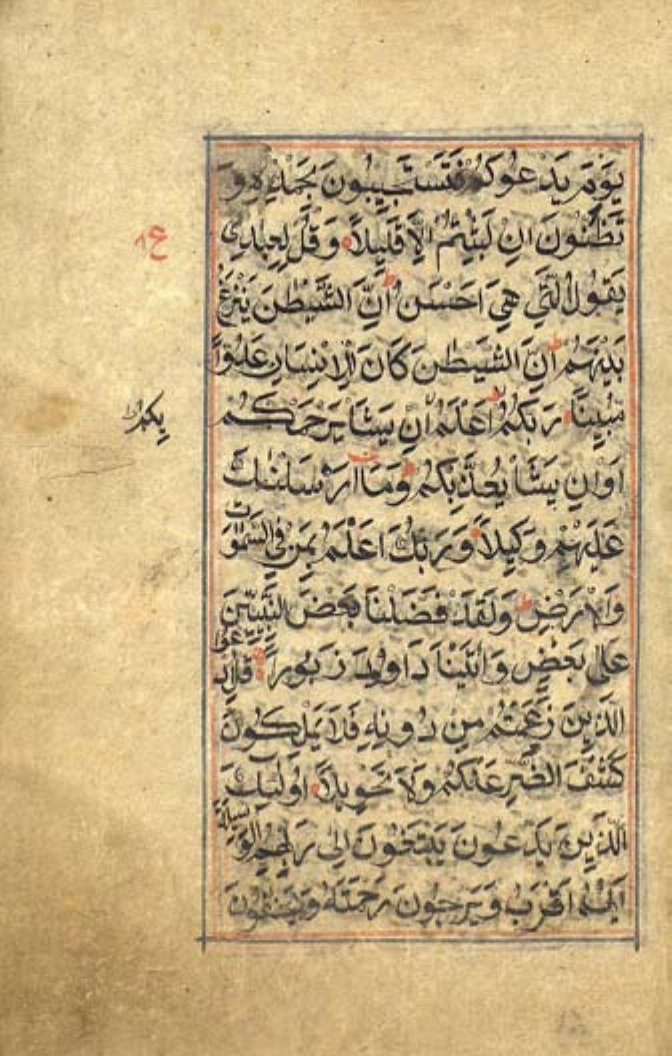 يَوْمَ يَدْعُوكُمْ فَتَسْتَجِيبُونَ بِحَمْدِهِ وَ
تَظُنُّونَ اِنْ لَبِثْتُمْ اِلَّا قَلِيلًا وَقُلْ لِعِبَادِى
يَقُولُوا الَّتِى هِىَ اَحْسَنُ ط اِنَّ الشَّيْطٰنَ يَنْزَغُ
بَيْنَهُمْ ط اِنَّ الشَّيْطٰنَ كَانَ لِلْاِنْسَانِ عَدُوًّا
مُبِينًا رَبُّكُمْ اَعْلَمُ اِنْ يَشَأْ يَرْحَمْكُمْ
اَوْ اِنْ يَشَأْ يُعَذِّبْكُمْ ط وَمَا اَرْسَلْنٰكَ
عَلَيْهِمْ وَكِيلًا وَرَبُّكَ اَعْلَمُ بِمَنْ فِى السَّمٰوٰتِ
وَالْاَرْضِ ط وَلَقَدْ فَضَّلْنَا بَعْضَ النَّبِيّٖنَ
عَلٰى بَعْضٍ وَاٰتَيْنَا دَاوٗدَ زَبُورًا قُلِ ادْعُوا
الَّذِينَ زَعَمْتُمْ مِنْ دُونِهِ فَلَا يَمْلِكُونَ
كَشْفَ الضُّرِّ عَنْكُمْ وَلَا تَحْوِيلًا اُولٰئِكَ
الَّذِينَ يَدْعُونَ يَبْتَغُونَ اِلٰى رَبِّهِمُ الْوَسِيلَةَ
اَيُّهُمْ اَقْرَبُ وَيَرْجُونَ رَحْمَتَهُ وَيَخَافُونَ
ع ٨
بِكُمْ